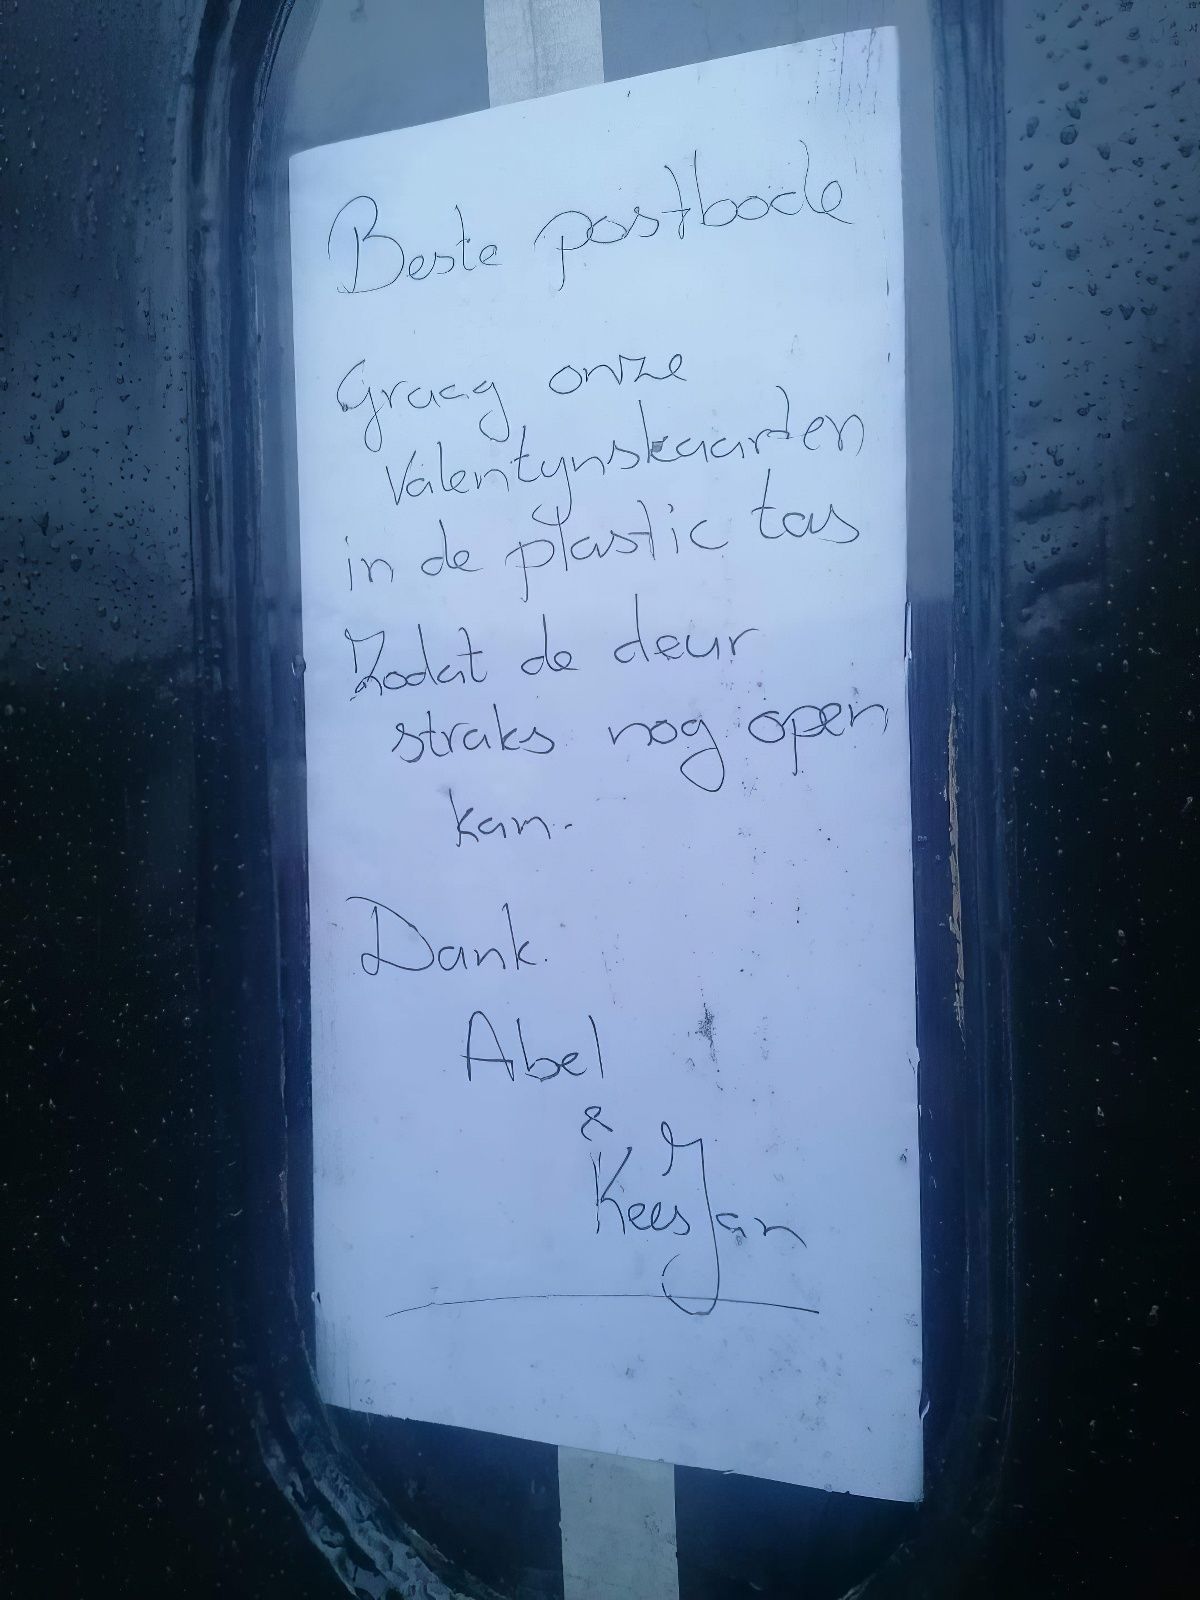 Beste postbode
Graag onze
Valentynskaarten
in de plastic tas
Zodat de deur
straks nog open
kan.
Dank.
Abel
&
KeesJan